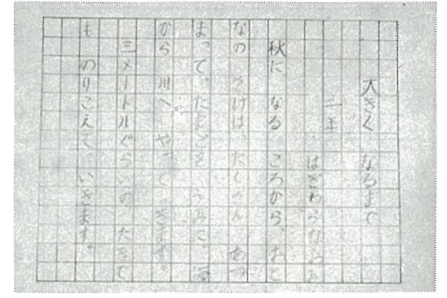 大きく なるまで
二年
秋に なる ころから、おと
なの さけは、たくさん あつ
まって、たまごを うみに、海
から 川へ やって きます。
三メートルぐらいの たきで
も のりこえて いきます。